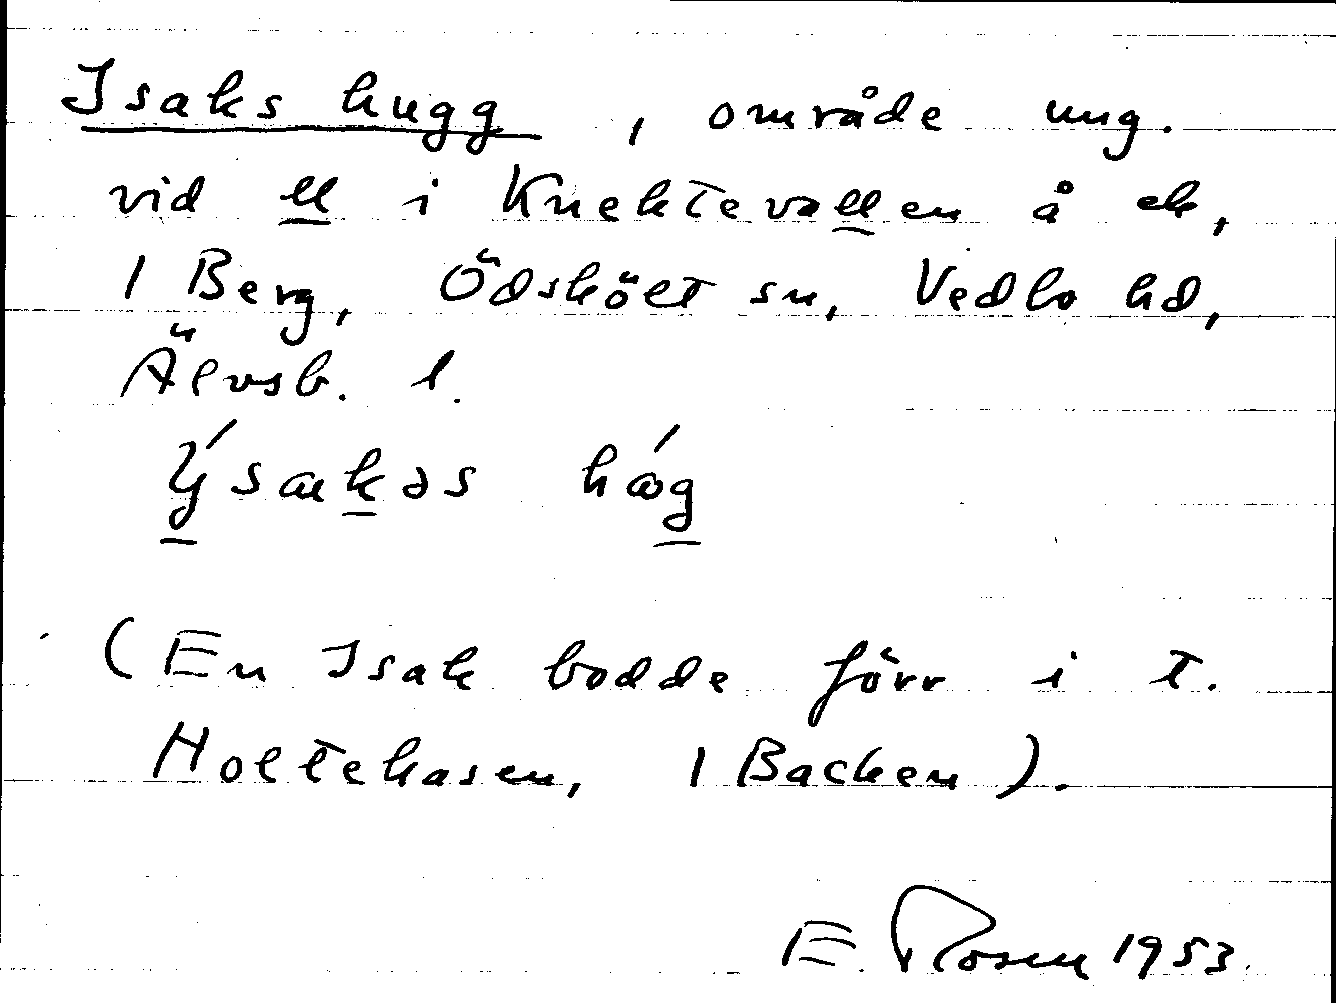 Isaks hugg, område ung.
vid ll i Knektevallen å ek,
1 Berg, Ödskölt sn, Vedbo hd,
Älvsb. l.
hǿg
(En Isak bodde förr i t.
Holtekasen, 1 Backen).
E. Rosen 1953.